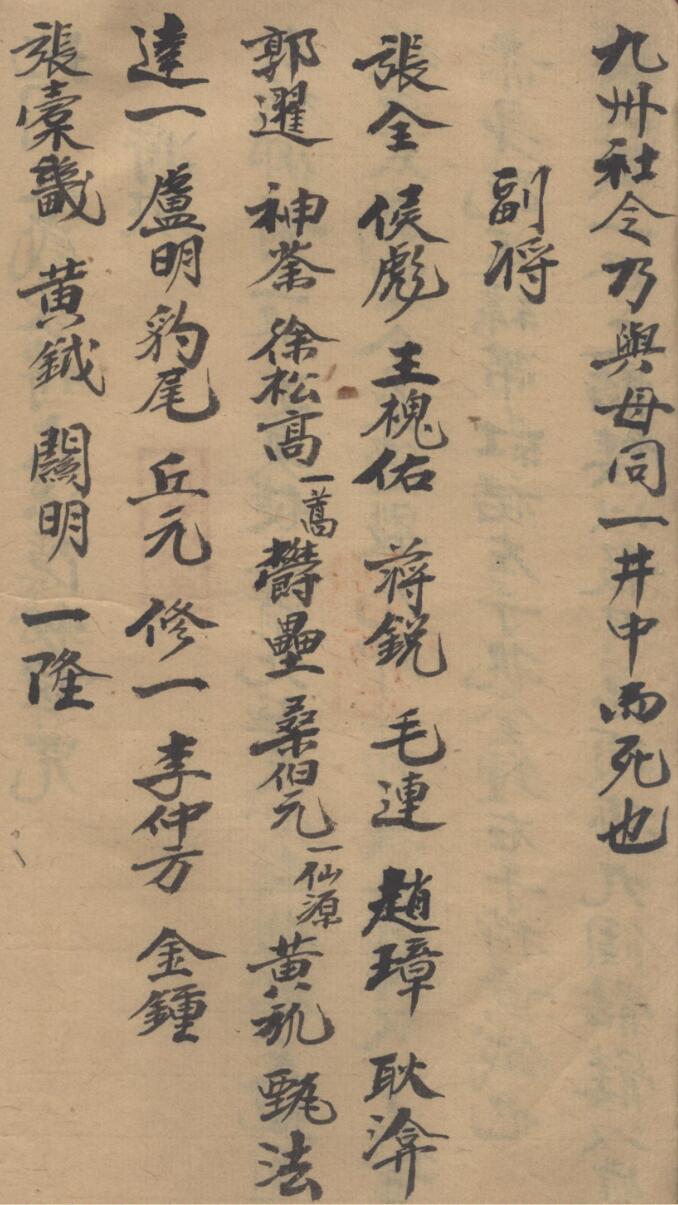 九州社令乃與母同一井中而死也
副将
張全 侯彪 王槐佑 蔣銳 毛連 趙璋 耿渰
郭邏 神荼 徐松高一蒿 欝壘 桑伯元一仙源 黄 甄法
達一 盧明 豹尾 丘元 修一 李仲方 金鍾
張槀 黄鉞 關明 一隆